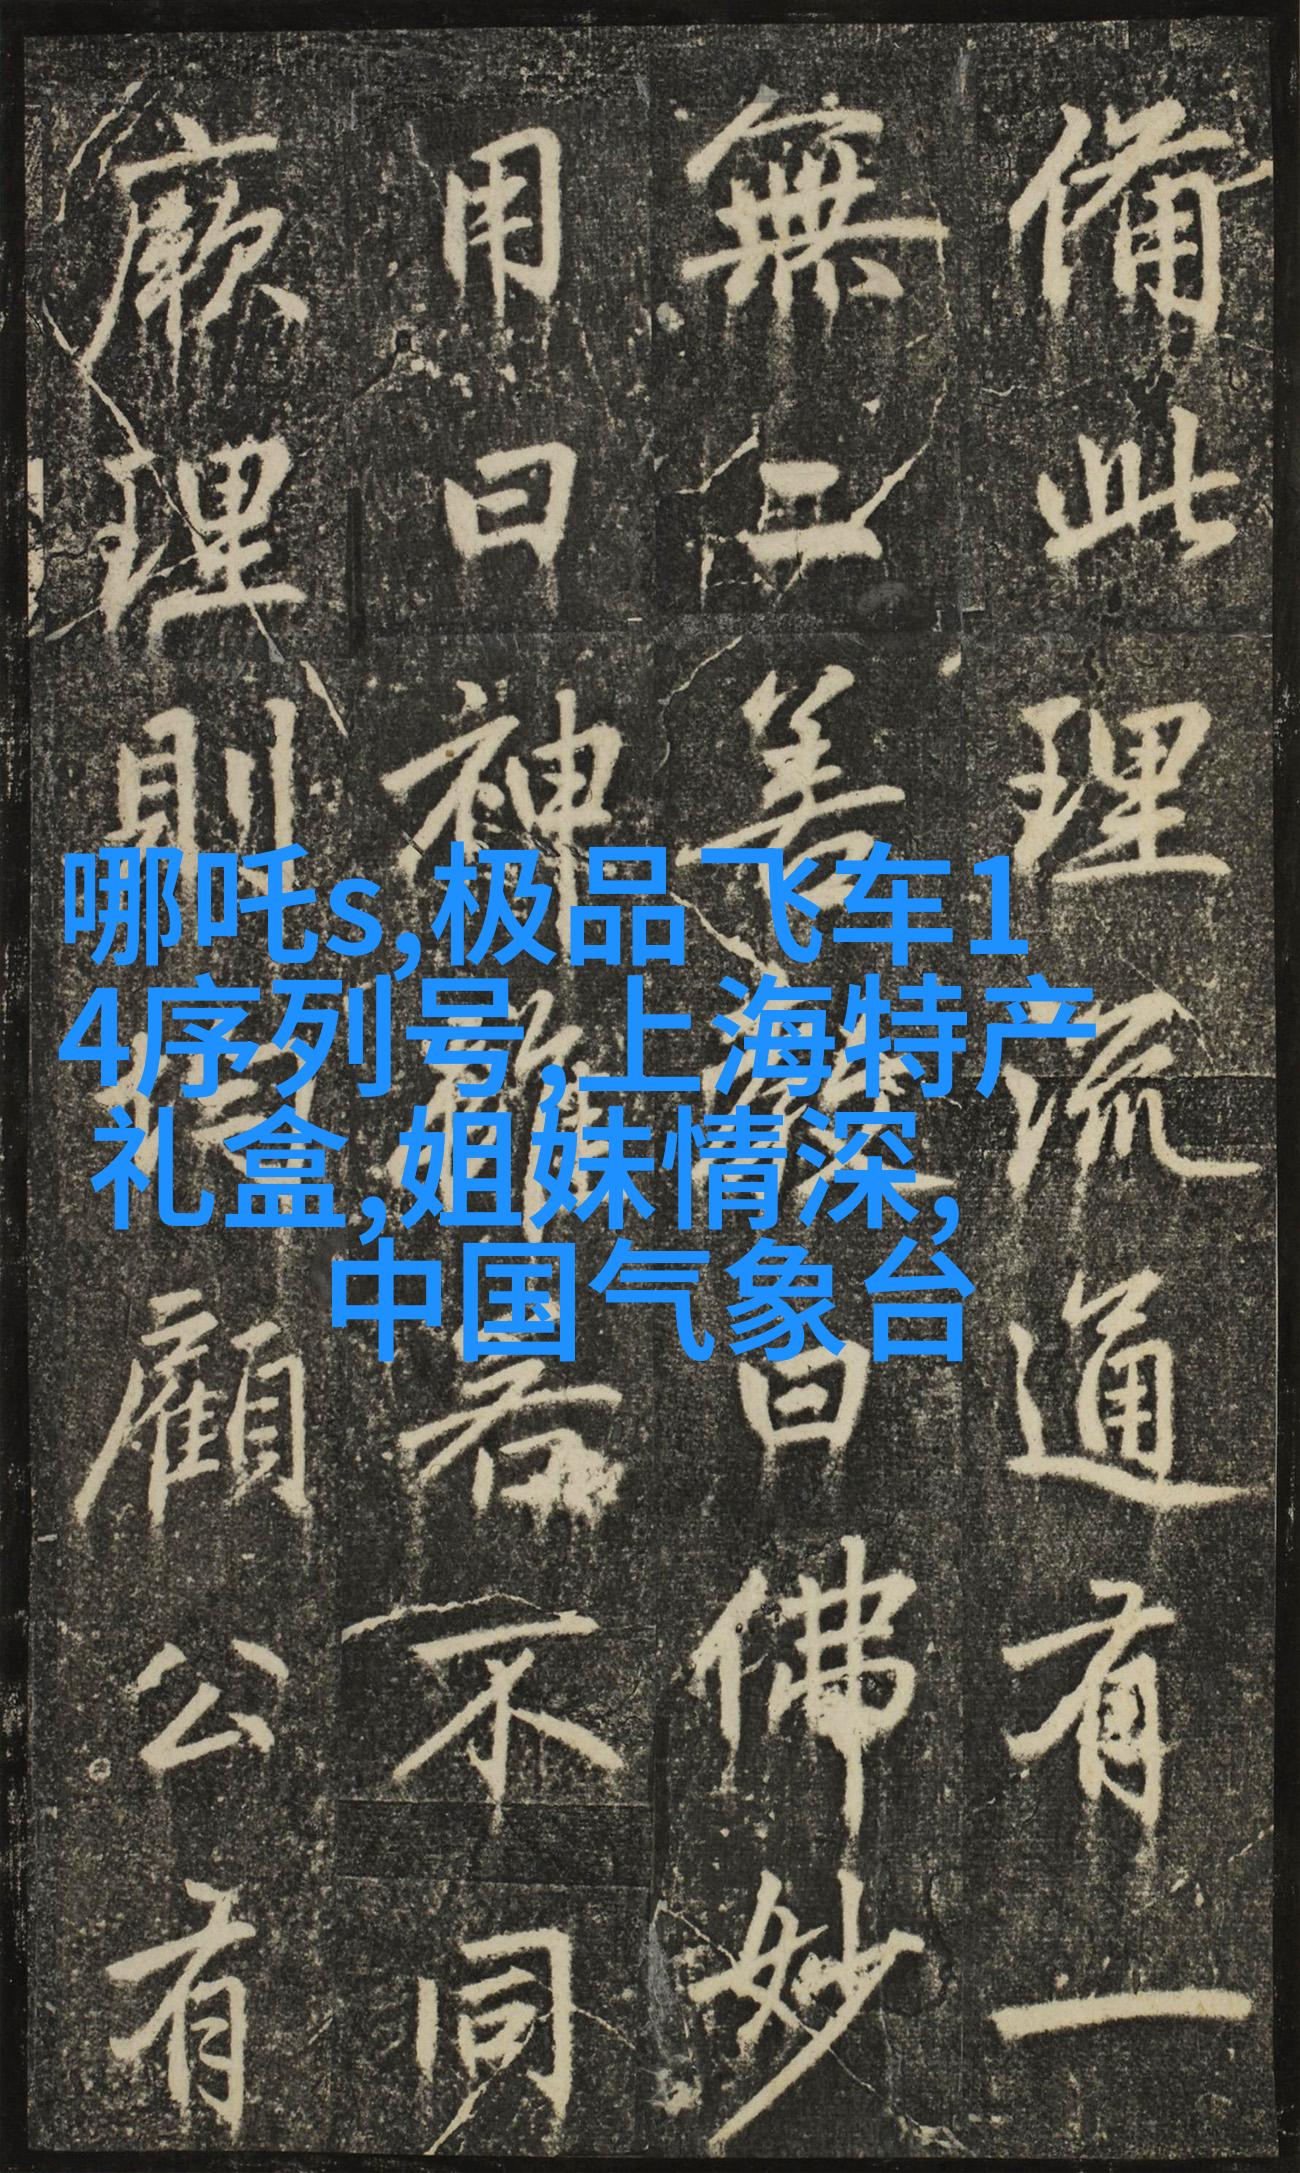 備此理流通有一
無二善曰佛妙
用曰神若不同
厥理則顧公有
哪吒s,极品飞车1
4序列号,上海特产
礼盒,姐妹情深,
中国气象台